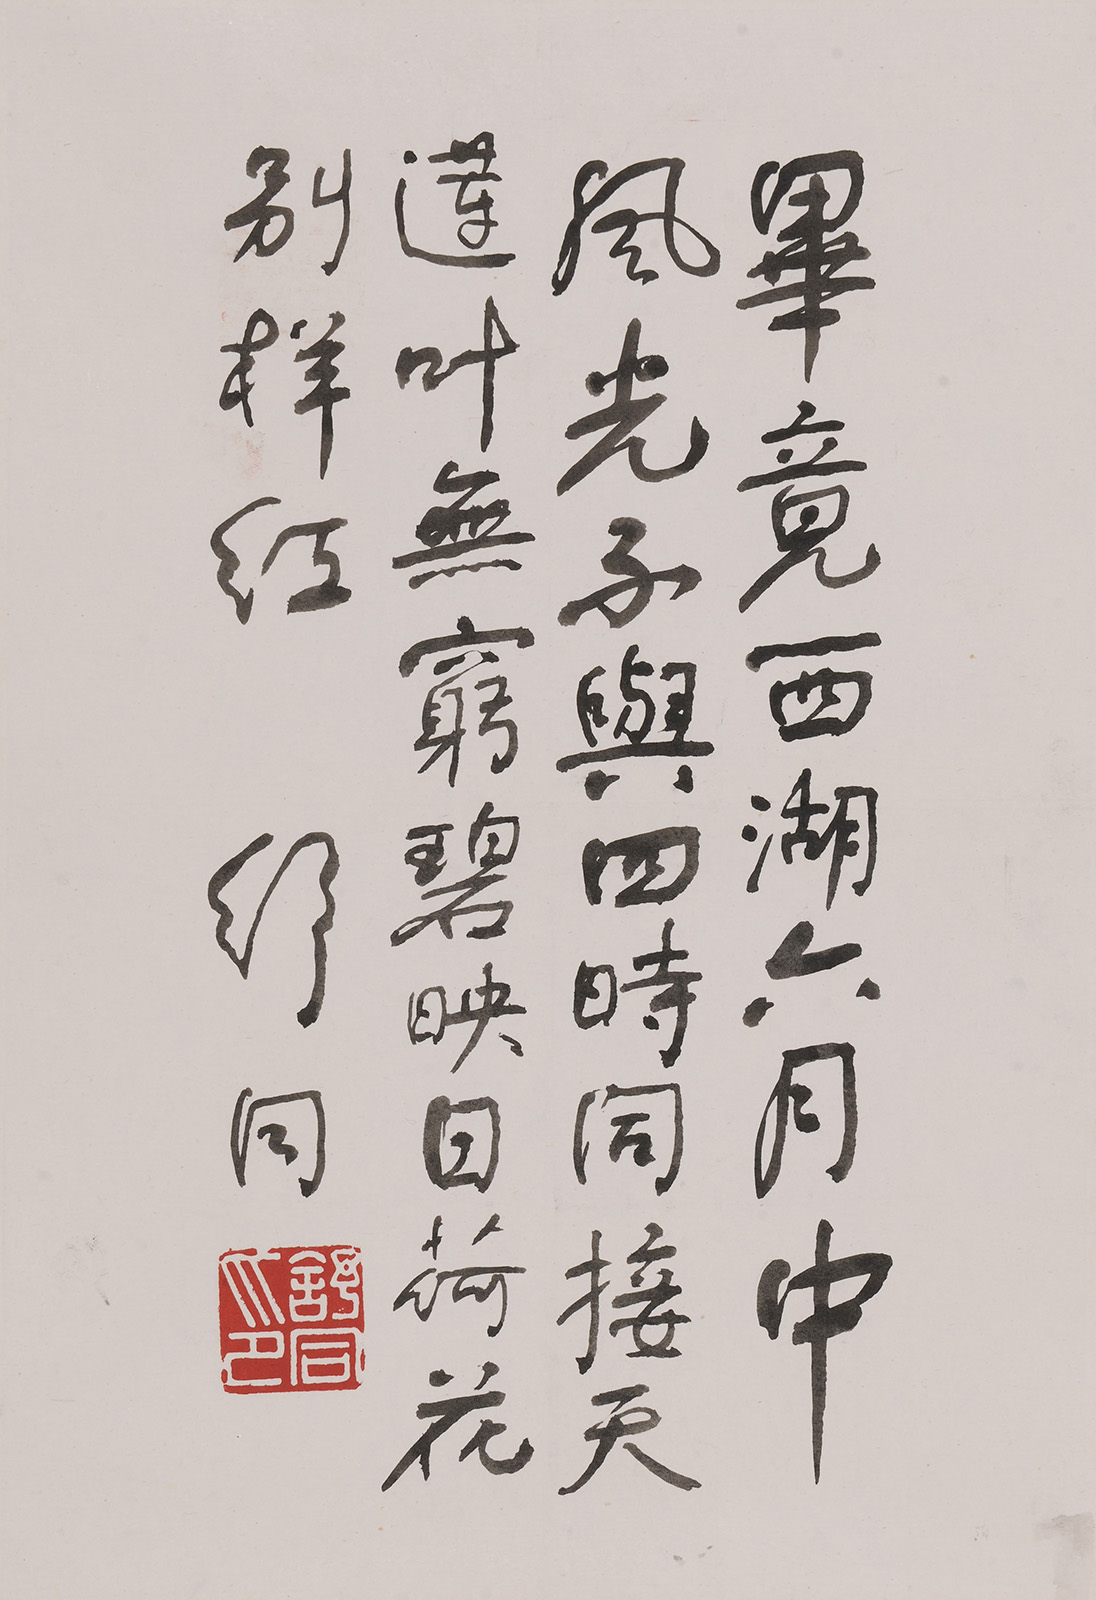 畢竟西湖六月中
風光不與四時同接天
蓮叶無窮碧映日荷花
別样紅 舒同
舒同之印